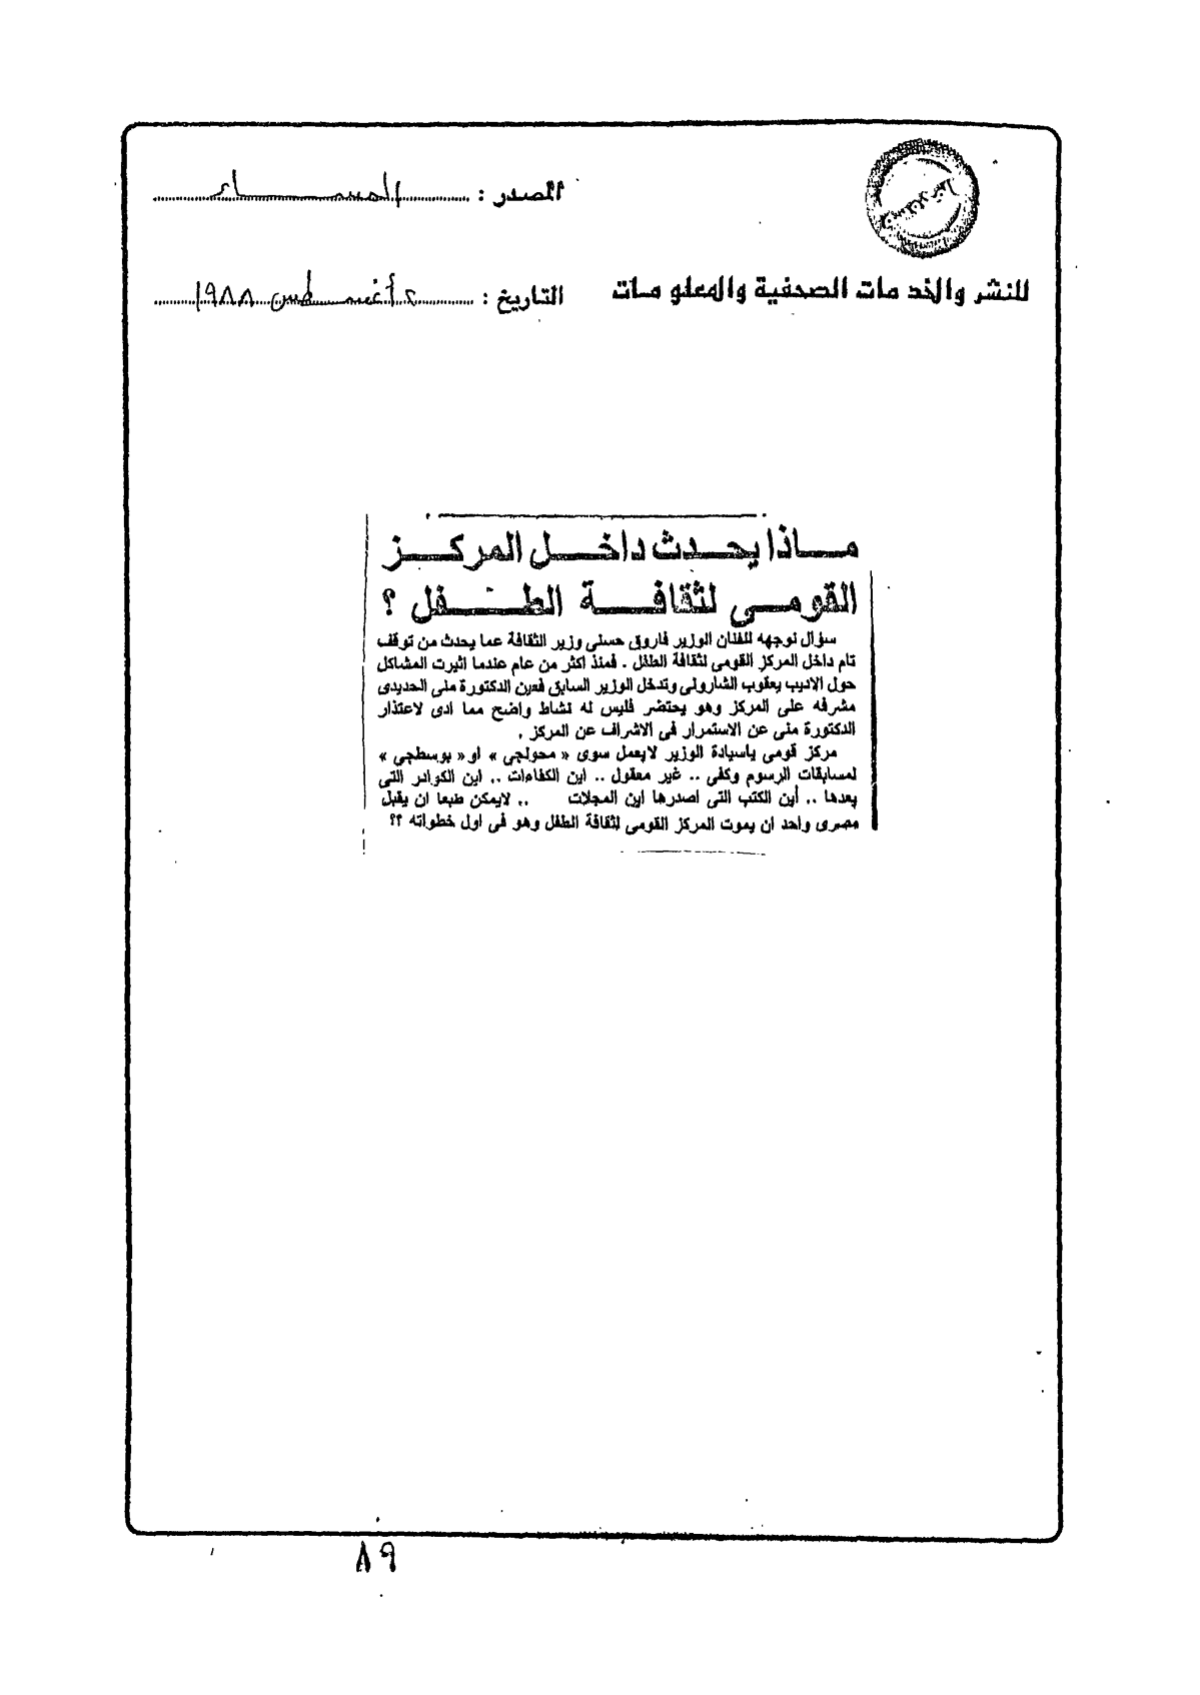 المصدر : المساء
للنشر والخدمات الصحفية والمعلومات
التاريخ : ٢ أغسطس ١٩٨٨
ماذا يحدث داخل المركز
القومى لثقافة الطفل ؟
سؤال نوجهه للفنان الوزير فاروق حسنى وزير الثقافة عما يحدث من توقف
تام داخل المركز القومى لثقافة الطفل . فمنذ اكثر من عام عندما اثيرت المشاكل
حول الاديب يعقوب الشارونى وتدخل الوزير السابق فعين الدكتورة منى الحديدى
مشرفه على المركز وهو يحتضر فليس له نشاط واضح مما ادى لاعتذار
الدكتورة منى عن الاستمرار فى الاشراف عن المركز .
مركز قومى ياسيادة الوزير لايعمل سوى « محولجى » او « بوسطجى »
لمسابقات الرسوم وكفى .. غير معقول .. اين الكفاءات .. اين الكوادر التى
يعدها .. أين الكتب التى اصدرها اين المجلات .. لايمكن طبعا ان يقبل
مصرى واحد ان يموت المركز القومى لثقافة الطفل وهو فى اول خطواته ؟؟
٨٩